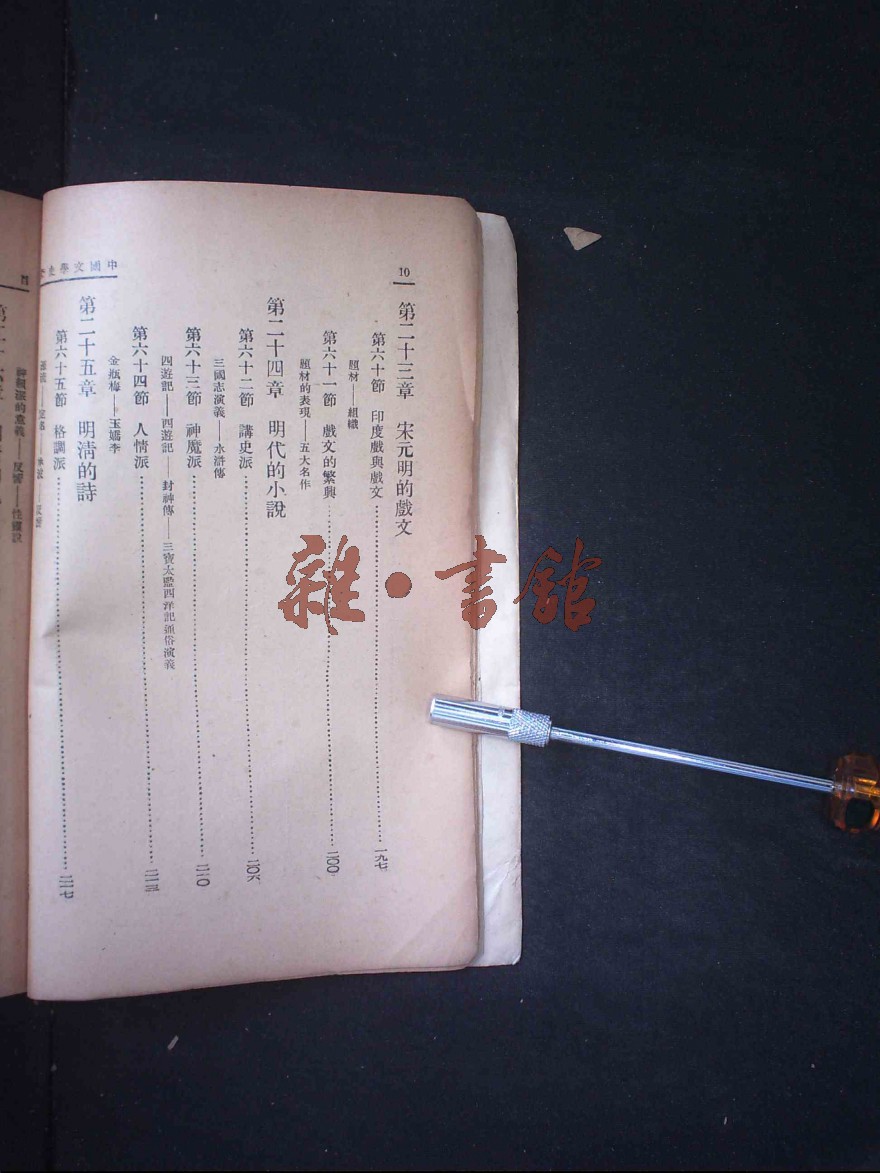 10
中國文學史
第二十三章　宋元明的戲文
第六十節　印度戲與戲文……一九七
題材——組織
第六十一節　戲文的繁興……二〇〇
題材的表現——五大名作
第二十四章　明代的小說
第六十二節　講史派……二〇六
三國志演義——水滸傳
第六十三節　神魔派……二一〇
四遊記——西遊記——封神傳——三寶太監西洋記通俗演義
第六十四節　人情派……二一三
金瓶梅——玉嬌李
第二十五章　明清的詩
第六十五節　格調派……二一七
雜·書館